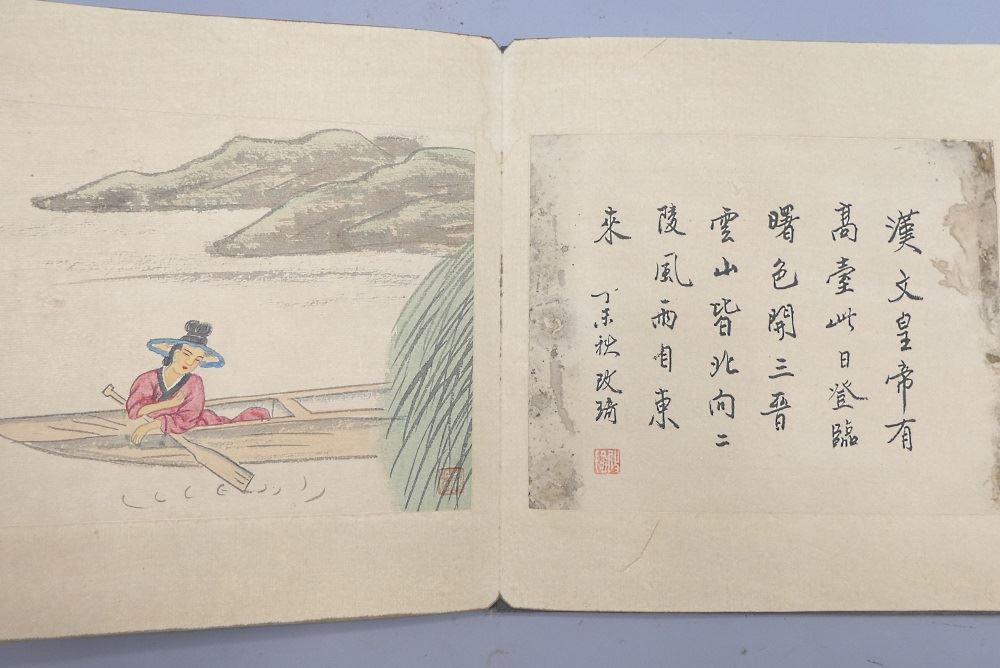 漢文皇帝有
高臺此日登臨
曙色開三晉
雲山皆北向二
陵風雨自東
來
丁未秋玫琦